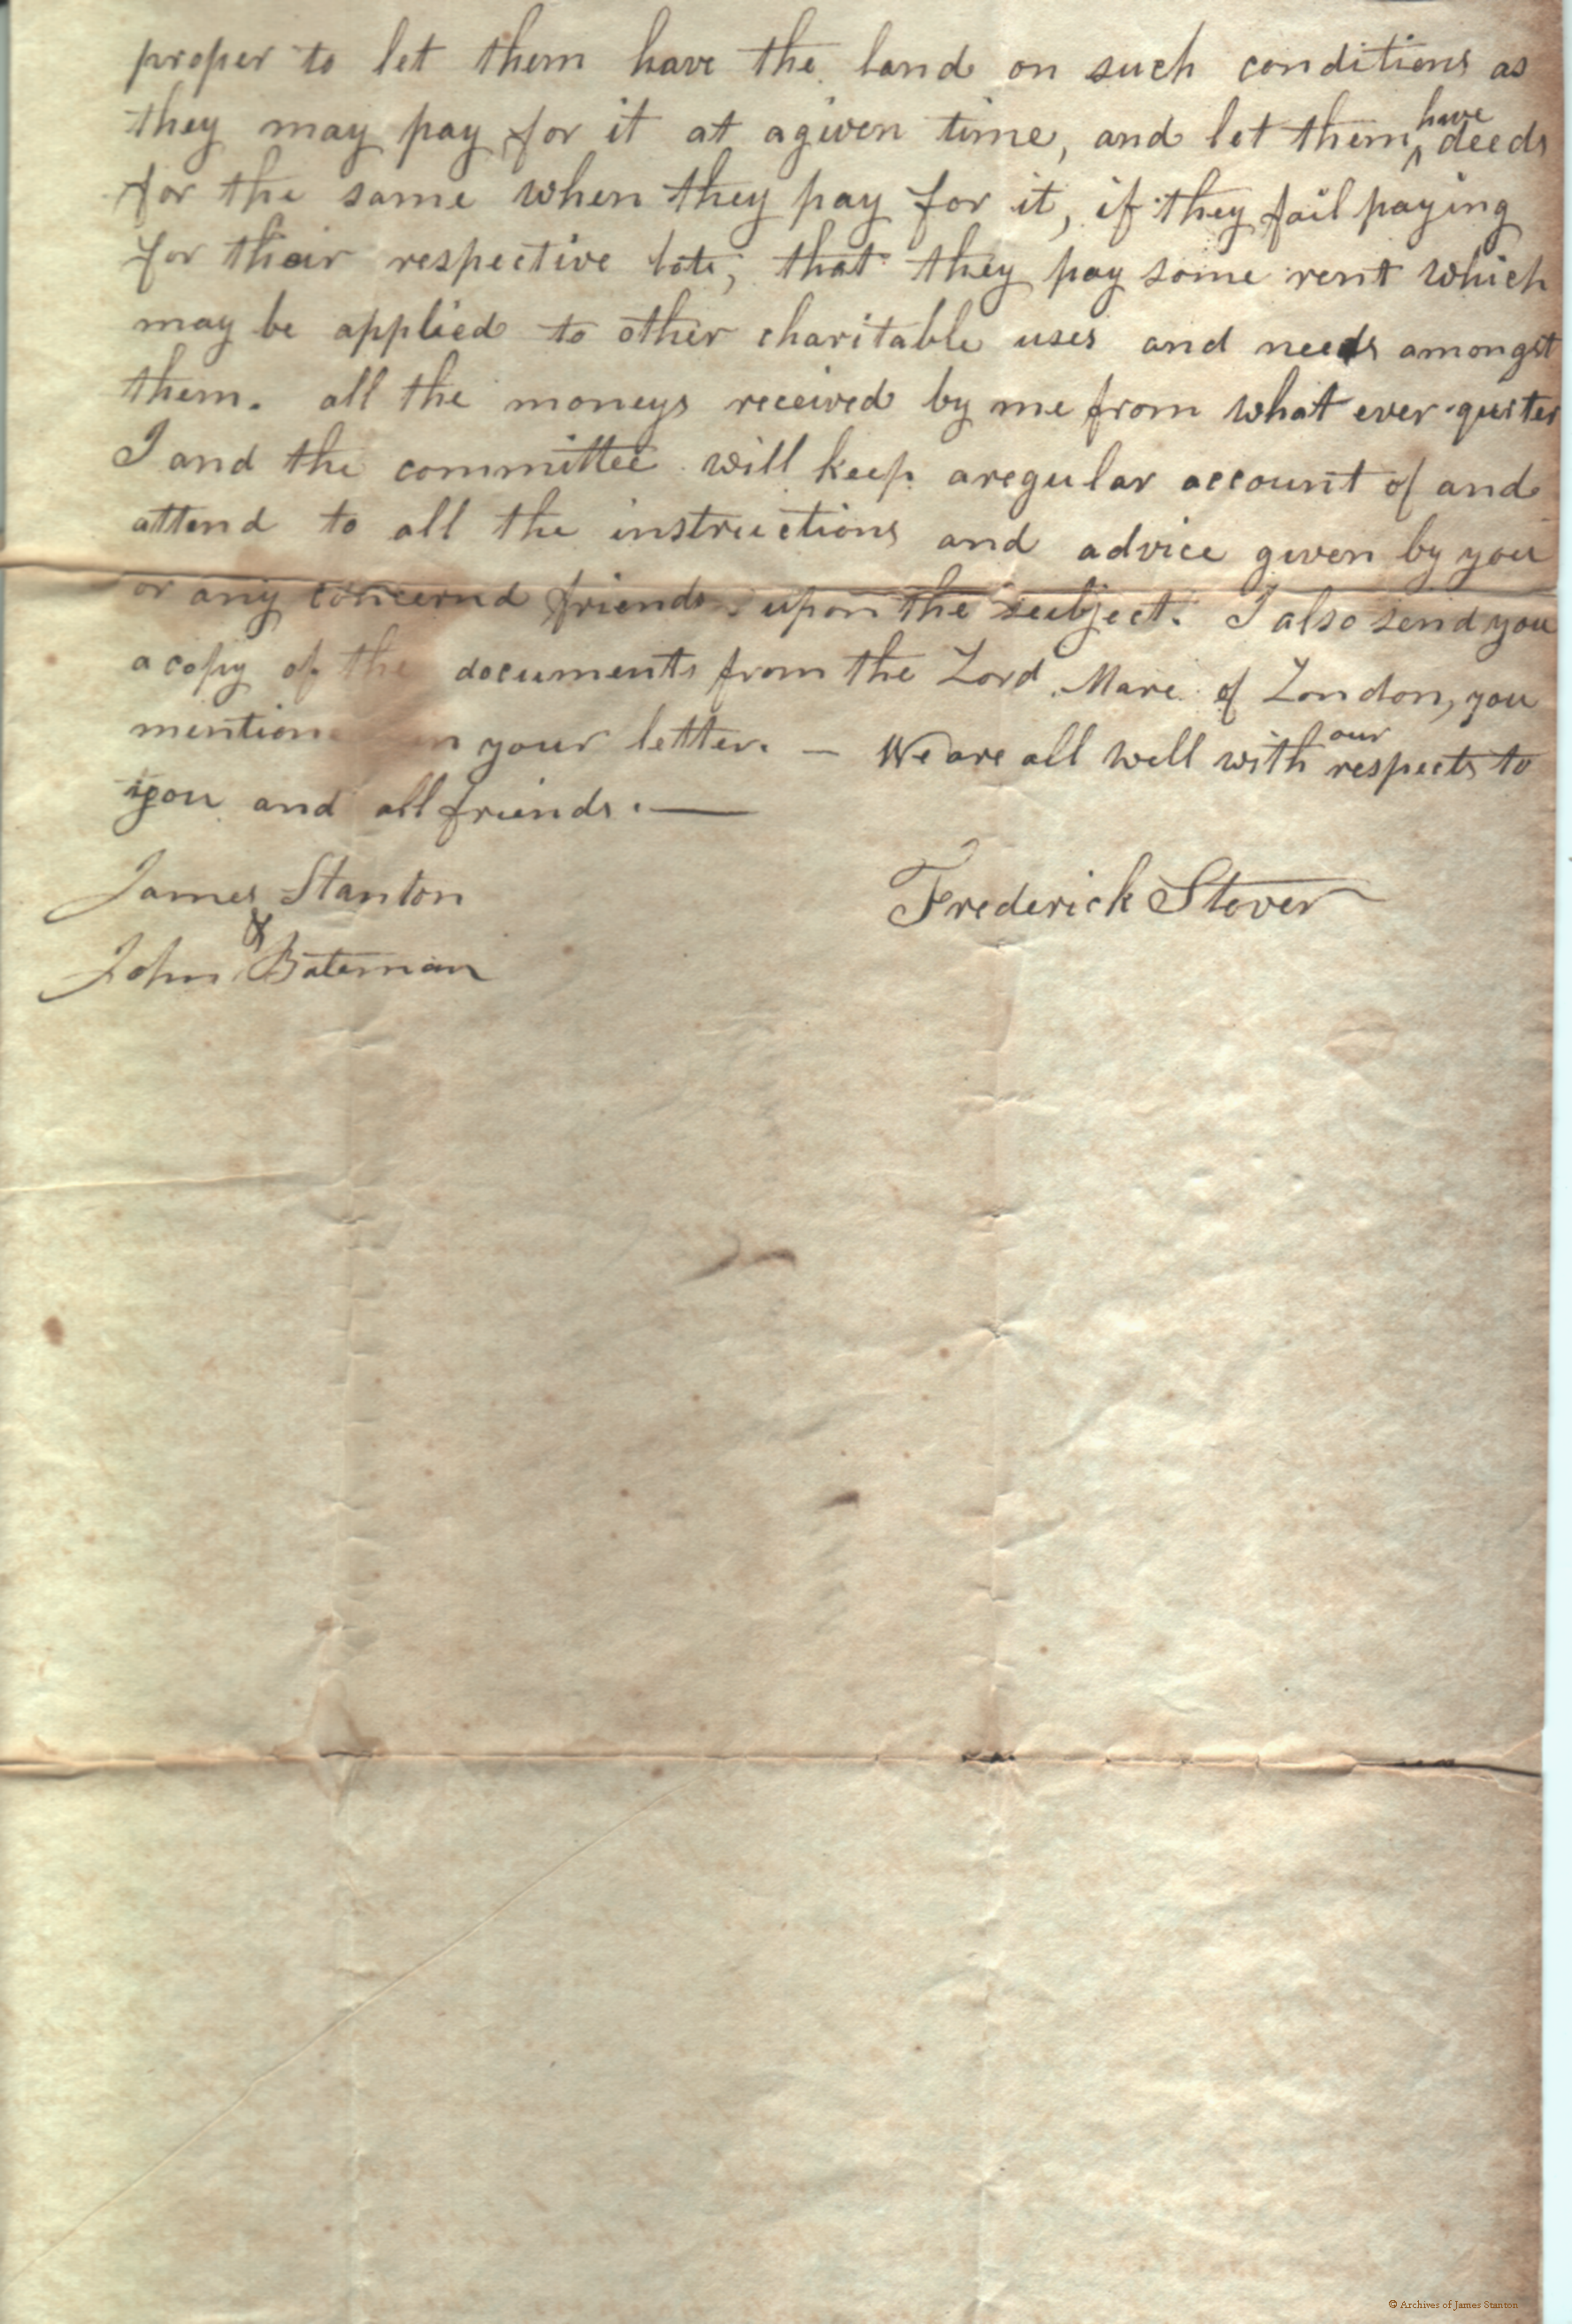 proper to let them have the land on such conditions as
they may pay for it at a given time, and let them have deeds
for the same when they pay for it, if they fail paying
for their respective lots, that they pay some rent which
may be applied to other charitable uses and needs amongst
them. all the moneys received by me from what ever
I and the committee will keep a regular account of and
attend to all the instructions and advice given by you
or any concernd friends upon the subject. I also send you
a copy of the documents from the Lord Mare of London, you
mention in your letter. — We are all well with our respects to
you and all friends. —
James Stanton
&
John Bateman
Frederick Stover
© Archives of James Stanton